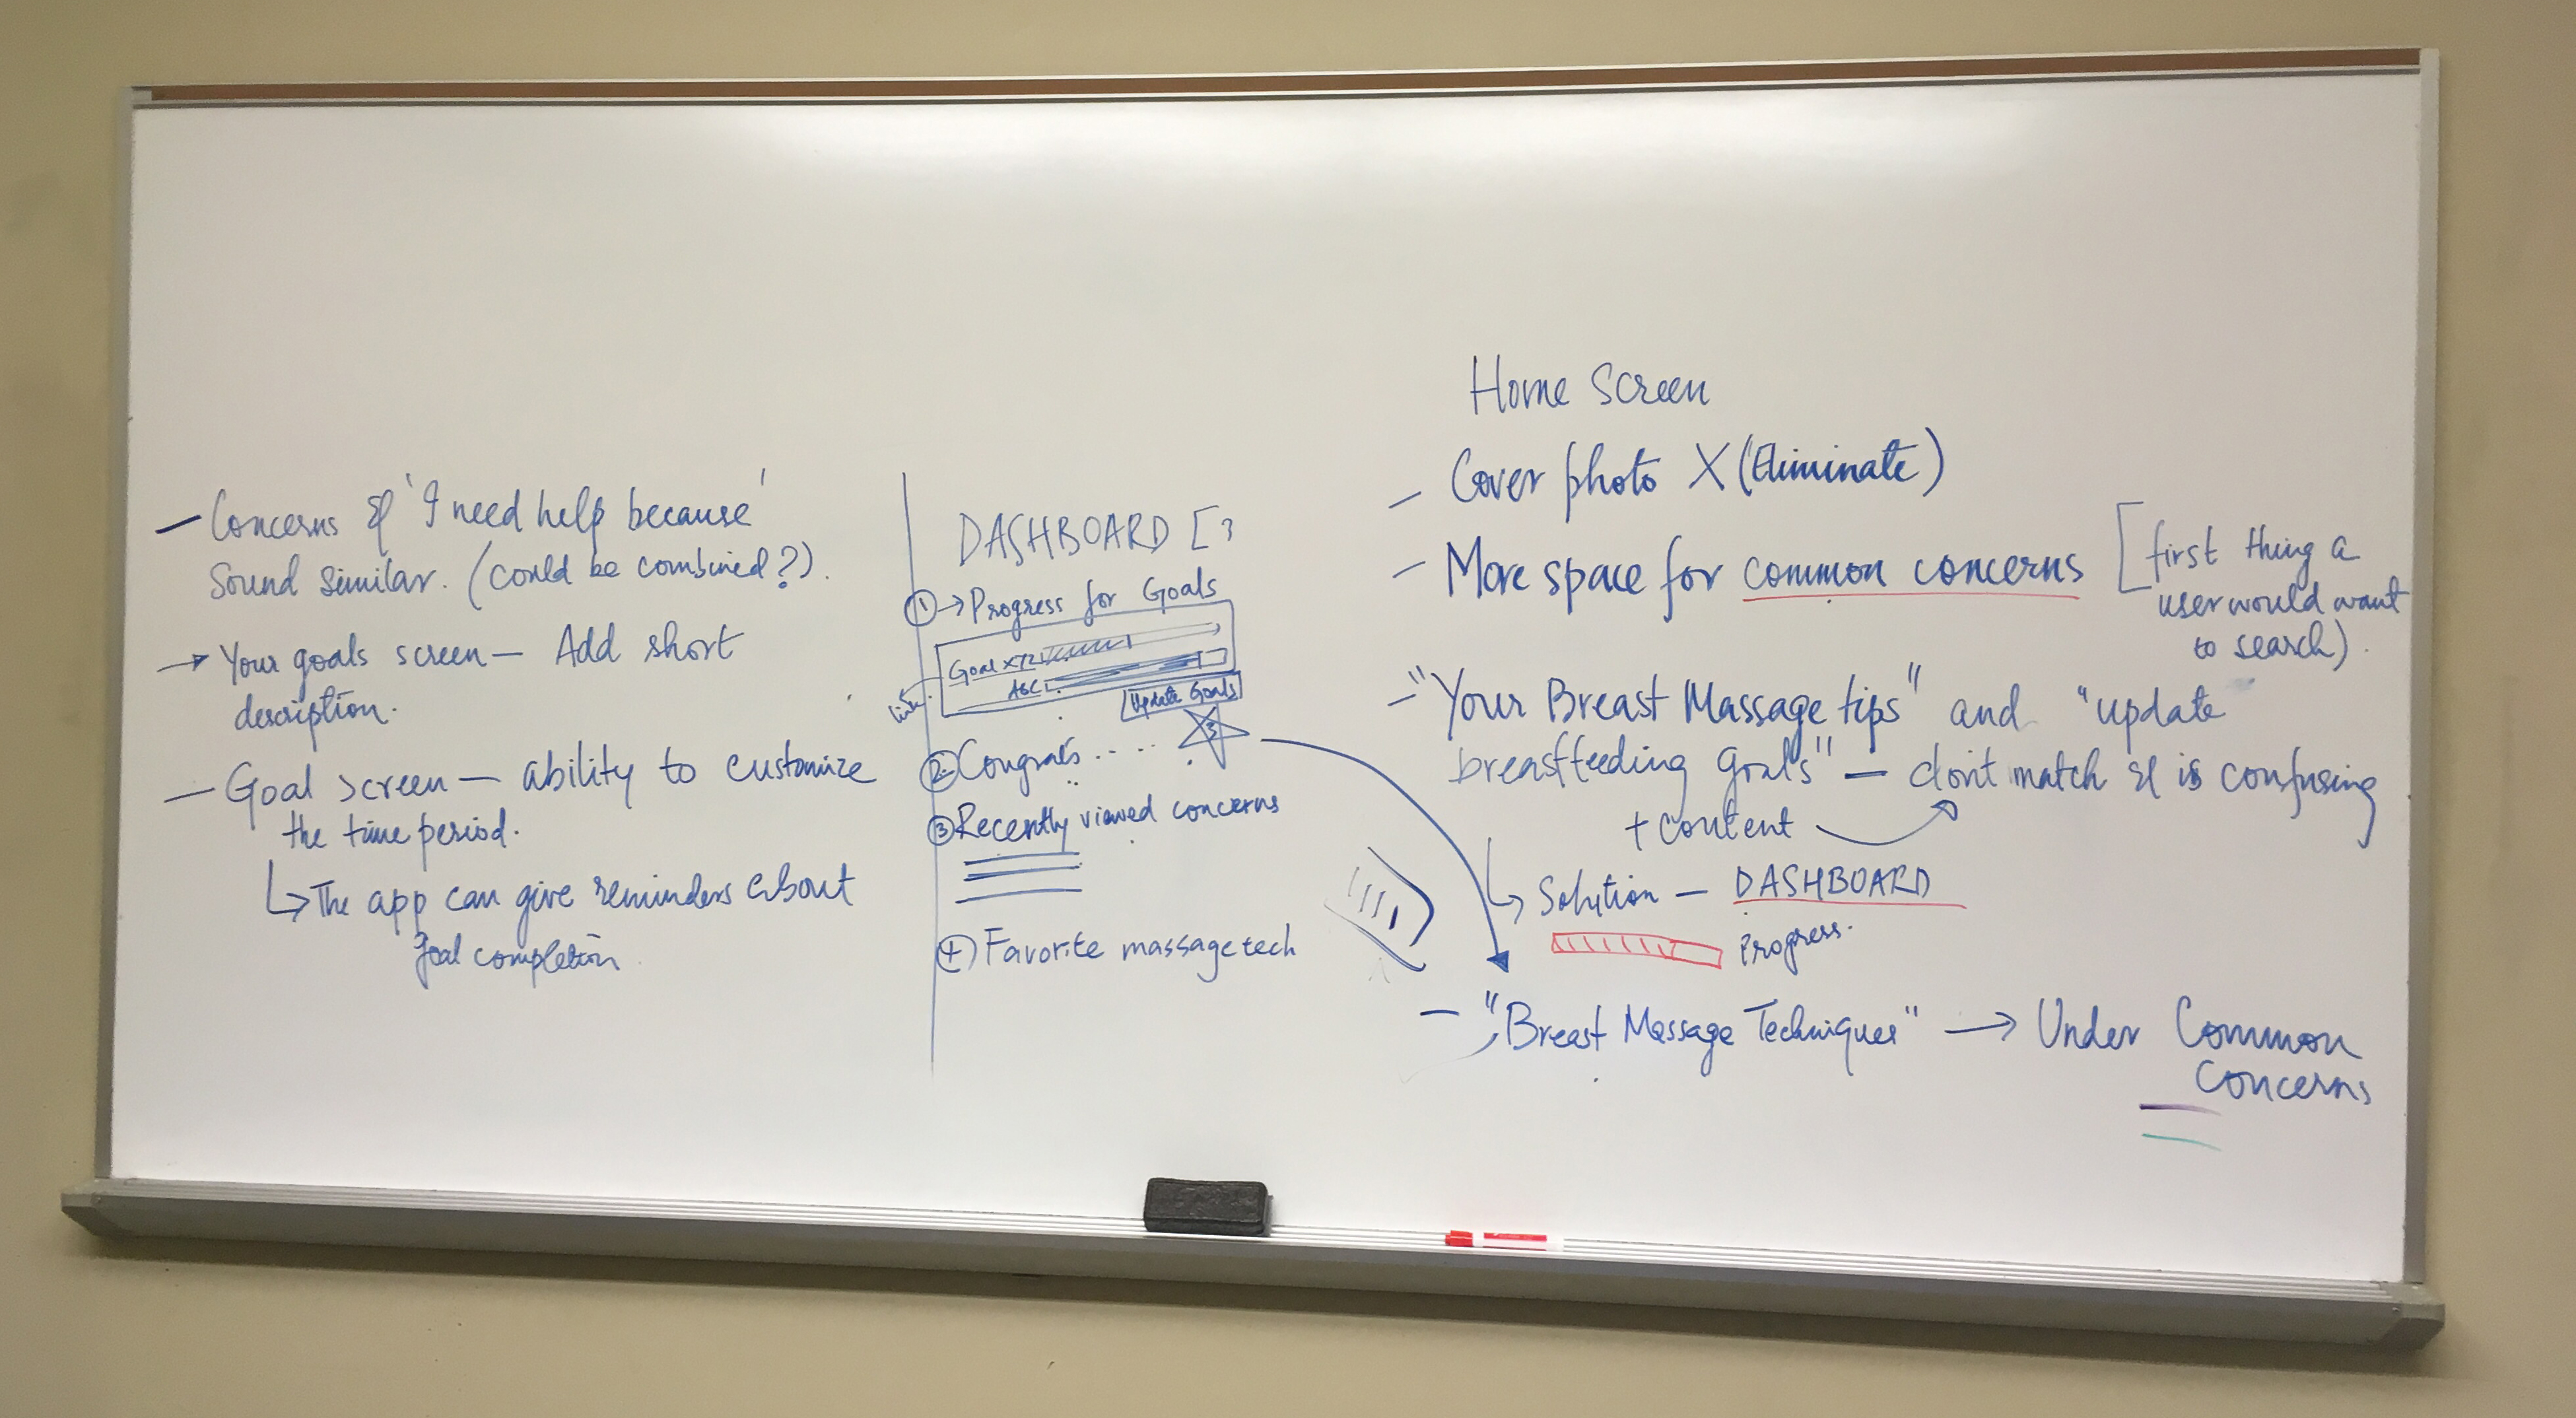 – Concerns & 'I need help because'
Sound similar. (could be combined?).
→ Your goals screen – Add short
description.
– Goal screen – ability to customize
the time period.
↳ The app can give reminders about
goal completion
DASHBOARD [
① → Progress for Goals
Goal XYZ
ABC
link
Update Goals
② Congrats .....
3
③ Recently viewed concerns
④ Favorite massage tech
Home Screen
– Cover photo X (Eliminate)
– More space for common concerns
[first thing a
user would want
to search).
– "Your Breast Massage tips" and "update
breastfeeding goals" – don't match & is confusing
+ content
↳ Solution – DASHBOARD
Progress.
– "Breast Massage Techniques" → Under Common
Concerns